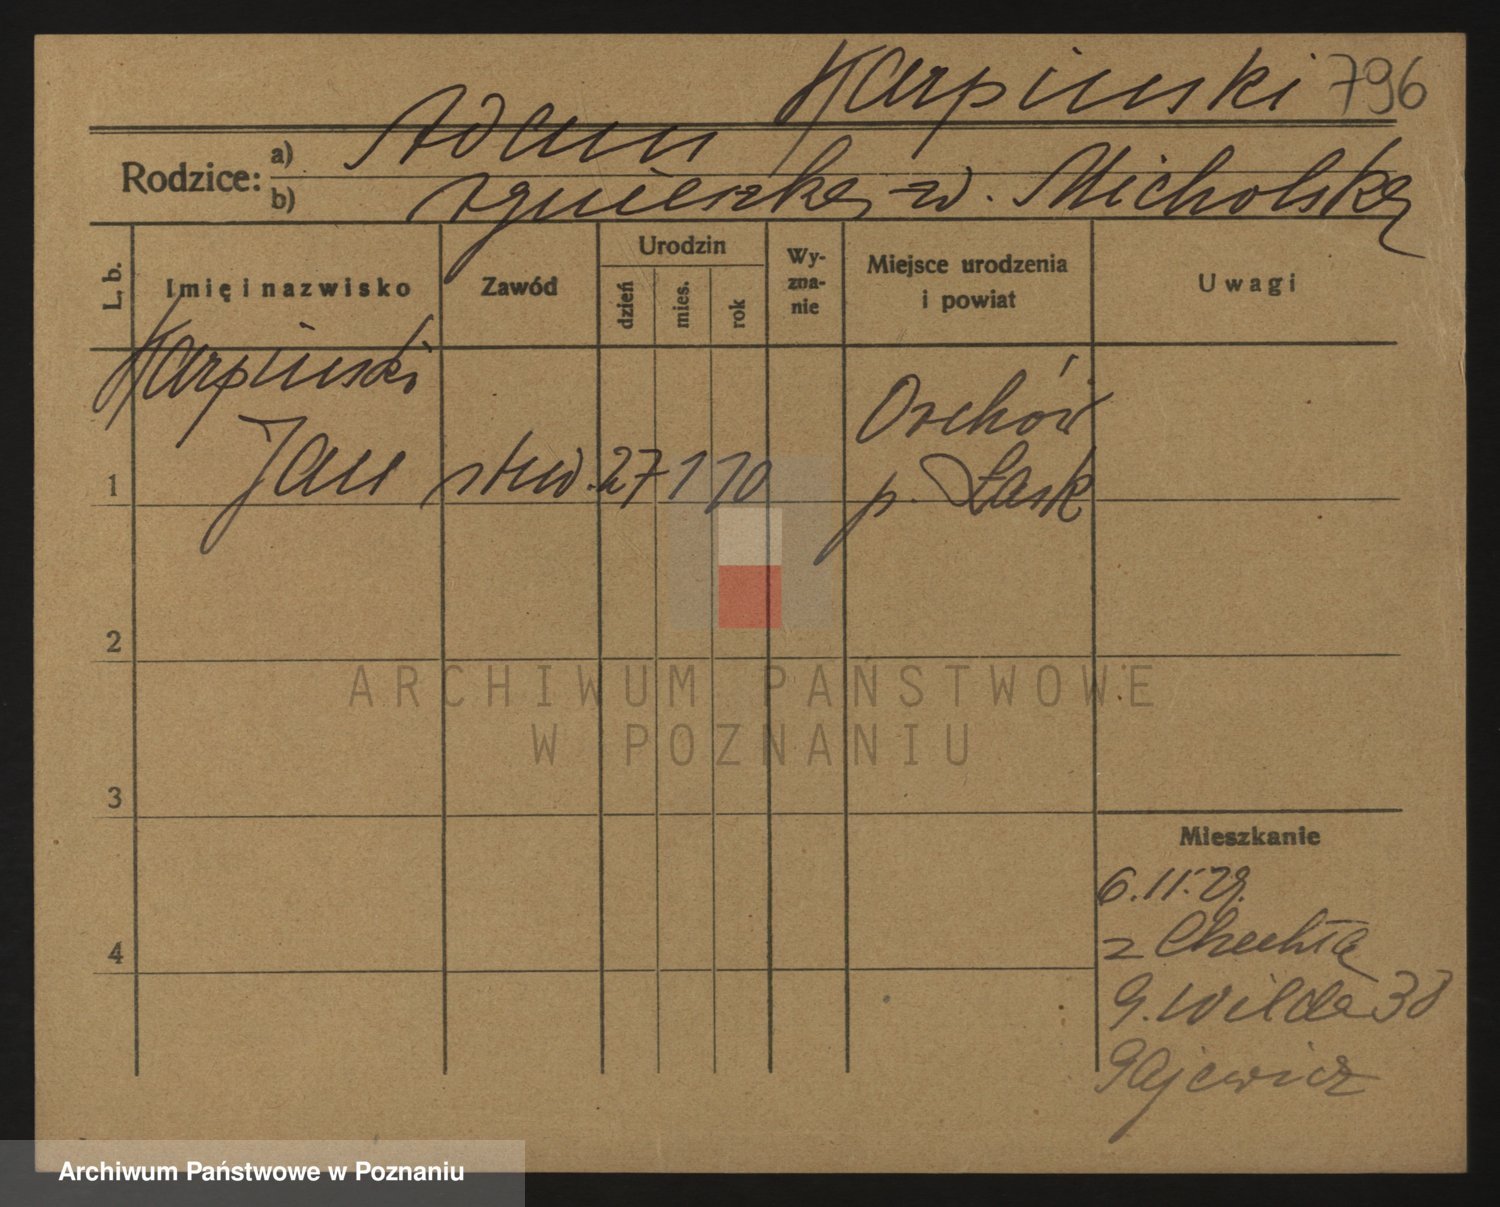 Karpinski 796
Rodzice: a) Adam
b) Agnieszka zd. Micholska
L. b. Imię i nazwisko Zawód Urodzin dzień mies. rok Wy-zna-nie Miejsce urodzenia i powiat Uwagi
Karpinski
Orchów
1 Jan stud. 27 1 10 p. Łask
2
ARCHIWUM PAŃSTWOWE
W POZNANIU
3
Mieszkanie
6.11.29.
z Chechła
4
G. Wilda 38
Archiwum Państwowe w Poznaniu